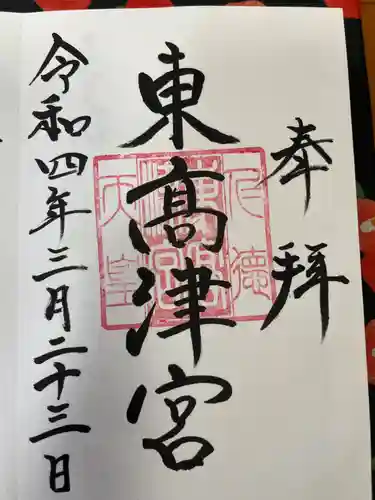 奉拝
東高津宮
仁徳
天皇
令和四年三月二十三日